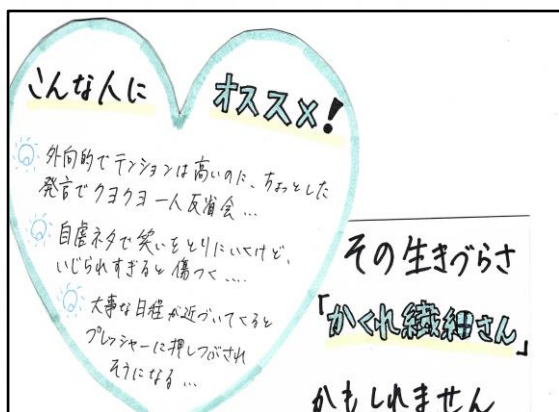 こんな人に
オススメ!
外向的でテンションは高いのに、ちょっとした
発言でクヨクヨ一人反省会…
自虐ネタで笑いをとりにいくけど、
いじられすぎると傷つく....
大事な日程が近づいてくると
プレッシャーに押しつぶされ
そうになる…
その生きづらさ
「かくれ繊細さん」
かもしれません